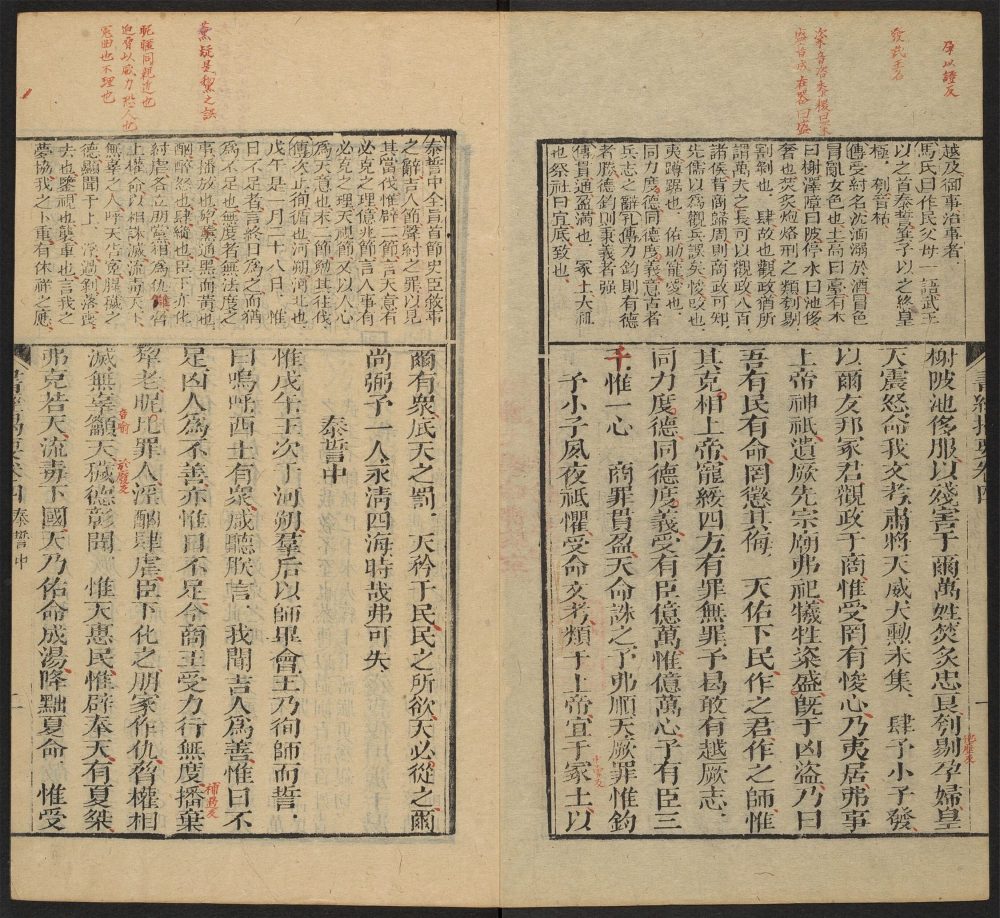 孕以證反
發武王名
粢音咨黍稷曰粢
盛音成在器曰盛
越及御事治事者
馬氏曰作民父母一語武王
以之首泰誓箕子以之終皇
極 刳音枯
傳受紂名沈湎溺於酒冒色
冒亂女色也土高曰臺有木
曰榭澤障曰陂停水曰池侈
奢也焚炙炮烙刑之類刳剔
割剝也 肆故也觀政猶所
謂萬夫之長可以觀政八百
諸侯背商歸周則商政可知
先儒以爲觀兵誤矣悛改也
夷蹲踞也 佑助寵愛也
同力度德同德度義意古者
兵志之辭孔傳力鈞則有德
者勝德鈞則秉義者强
傳貫通盈滿也 冢土大社
也祭社曰宜底致也
榭陂池侈服以殘害于爾萬姓焚炙忠良刳剔孕婦皇
天震怒命我文考肅將天威大勳未集 肆予小子發
以爾友邦冢君觀政于商惟受罔有悛心乃夷居弗事
上帝神祇遺厥先宗廟弗祀犧牲粢盛旣于凶盜乃曰
吾有民有命罔懲其侮 天佑下民作之君作之師惟
其克相上帝寵綏四方有罪無罪予曷敢有越厥志
同力度德同德度義受有臣億萬惟億萬心予有臣三
千惟一心 商罪貫盈天命誅之予弗順天厥罪惟鈞
予小子夙夜祇懼受命文考類于上帝宜于冢土以
疑是
之誤
昵暱同親近也
迫脅以威力恐人也
冤曲也不理也
泰誓中全旨首節史臣敘事
之辭吉人節聲紂之罪以見
其當伐惟辟二節言天意有
必克之理億兆節言人事有
必克之理天視節又以人心
爲天意也末二節勉其往伐
傳次止徇循也河朔河北也
戊午是一月二十八日 惟
日不足者言終日爲之而猶
爲不足也無度者無法度之
事播放也犂黧通黑而黃也
酗醉怒也肆縱也臣下亦化
紂虐各立朋黨相爲仇讐脅
上權命以相誅滅流毒天下
無辜之人呼天告冤腥穢之
德顯聞于上 浮過剝落喪
去也鑒視也襲重也言我之
夢協我之卜重有休祥之應
爾有衆厎天之罰 天矜于民民之所欲天必從之爾
尚弼予一人永淸四海時哉弗可失
泰誓中
惟戊午王次于河朔羣后以師畢會王乃徇師而誓
曰嗚呼西土有衆咸聽朕言 我聞吉人爲善惟日不
足凶人爲不善亦惟日不足今商王受力行無度播棄
犂老昵比罪人淫酗肆虐臣下化之朋家作仇脅權相
滅無辜籲天穢德彰聞 惟天惠民惟辟奉天有夏桀
弗克若天流毒下國天乃佑命成湯降黜夏命 惟受
泰誓中
二